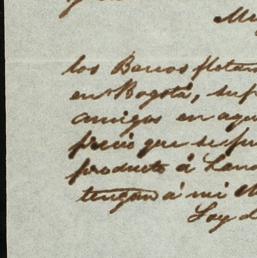 los Barcos flota
en Bogotá, su
amigos en aqu
precio que se pu
producto á Lon
tengan á mi
Soy d